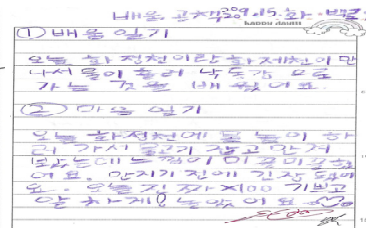 배움 공책 2009.9.15.화.
HAPPY
① 배움 일기
오늘 화전천이랑 화제천이 만
나서 물이 흘러 낙동강 으로
가는 것을 배웠어요.
② 마음 일기
오늘 화전천에 물 놀이 하
러 가서 물고기 잡고 만져
봤는데 느낌이 미끌미끌
어요. 만지기 전에 긴장
요. 오늘 진짜 기쁘고
알 차게 놀았어요